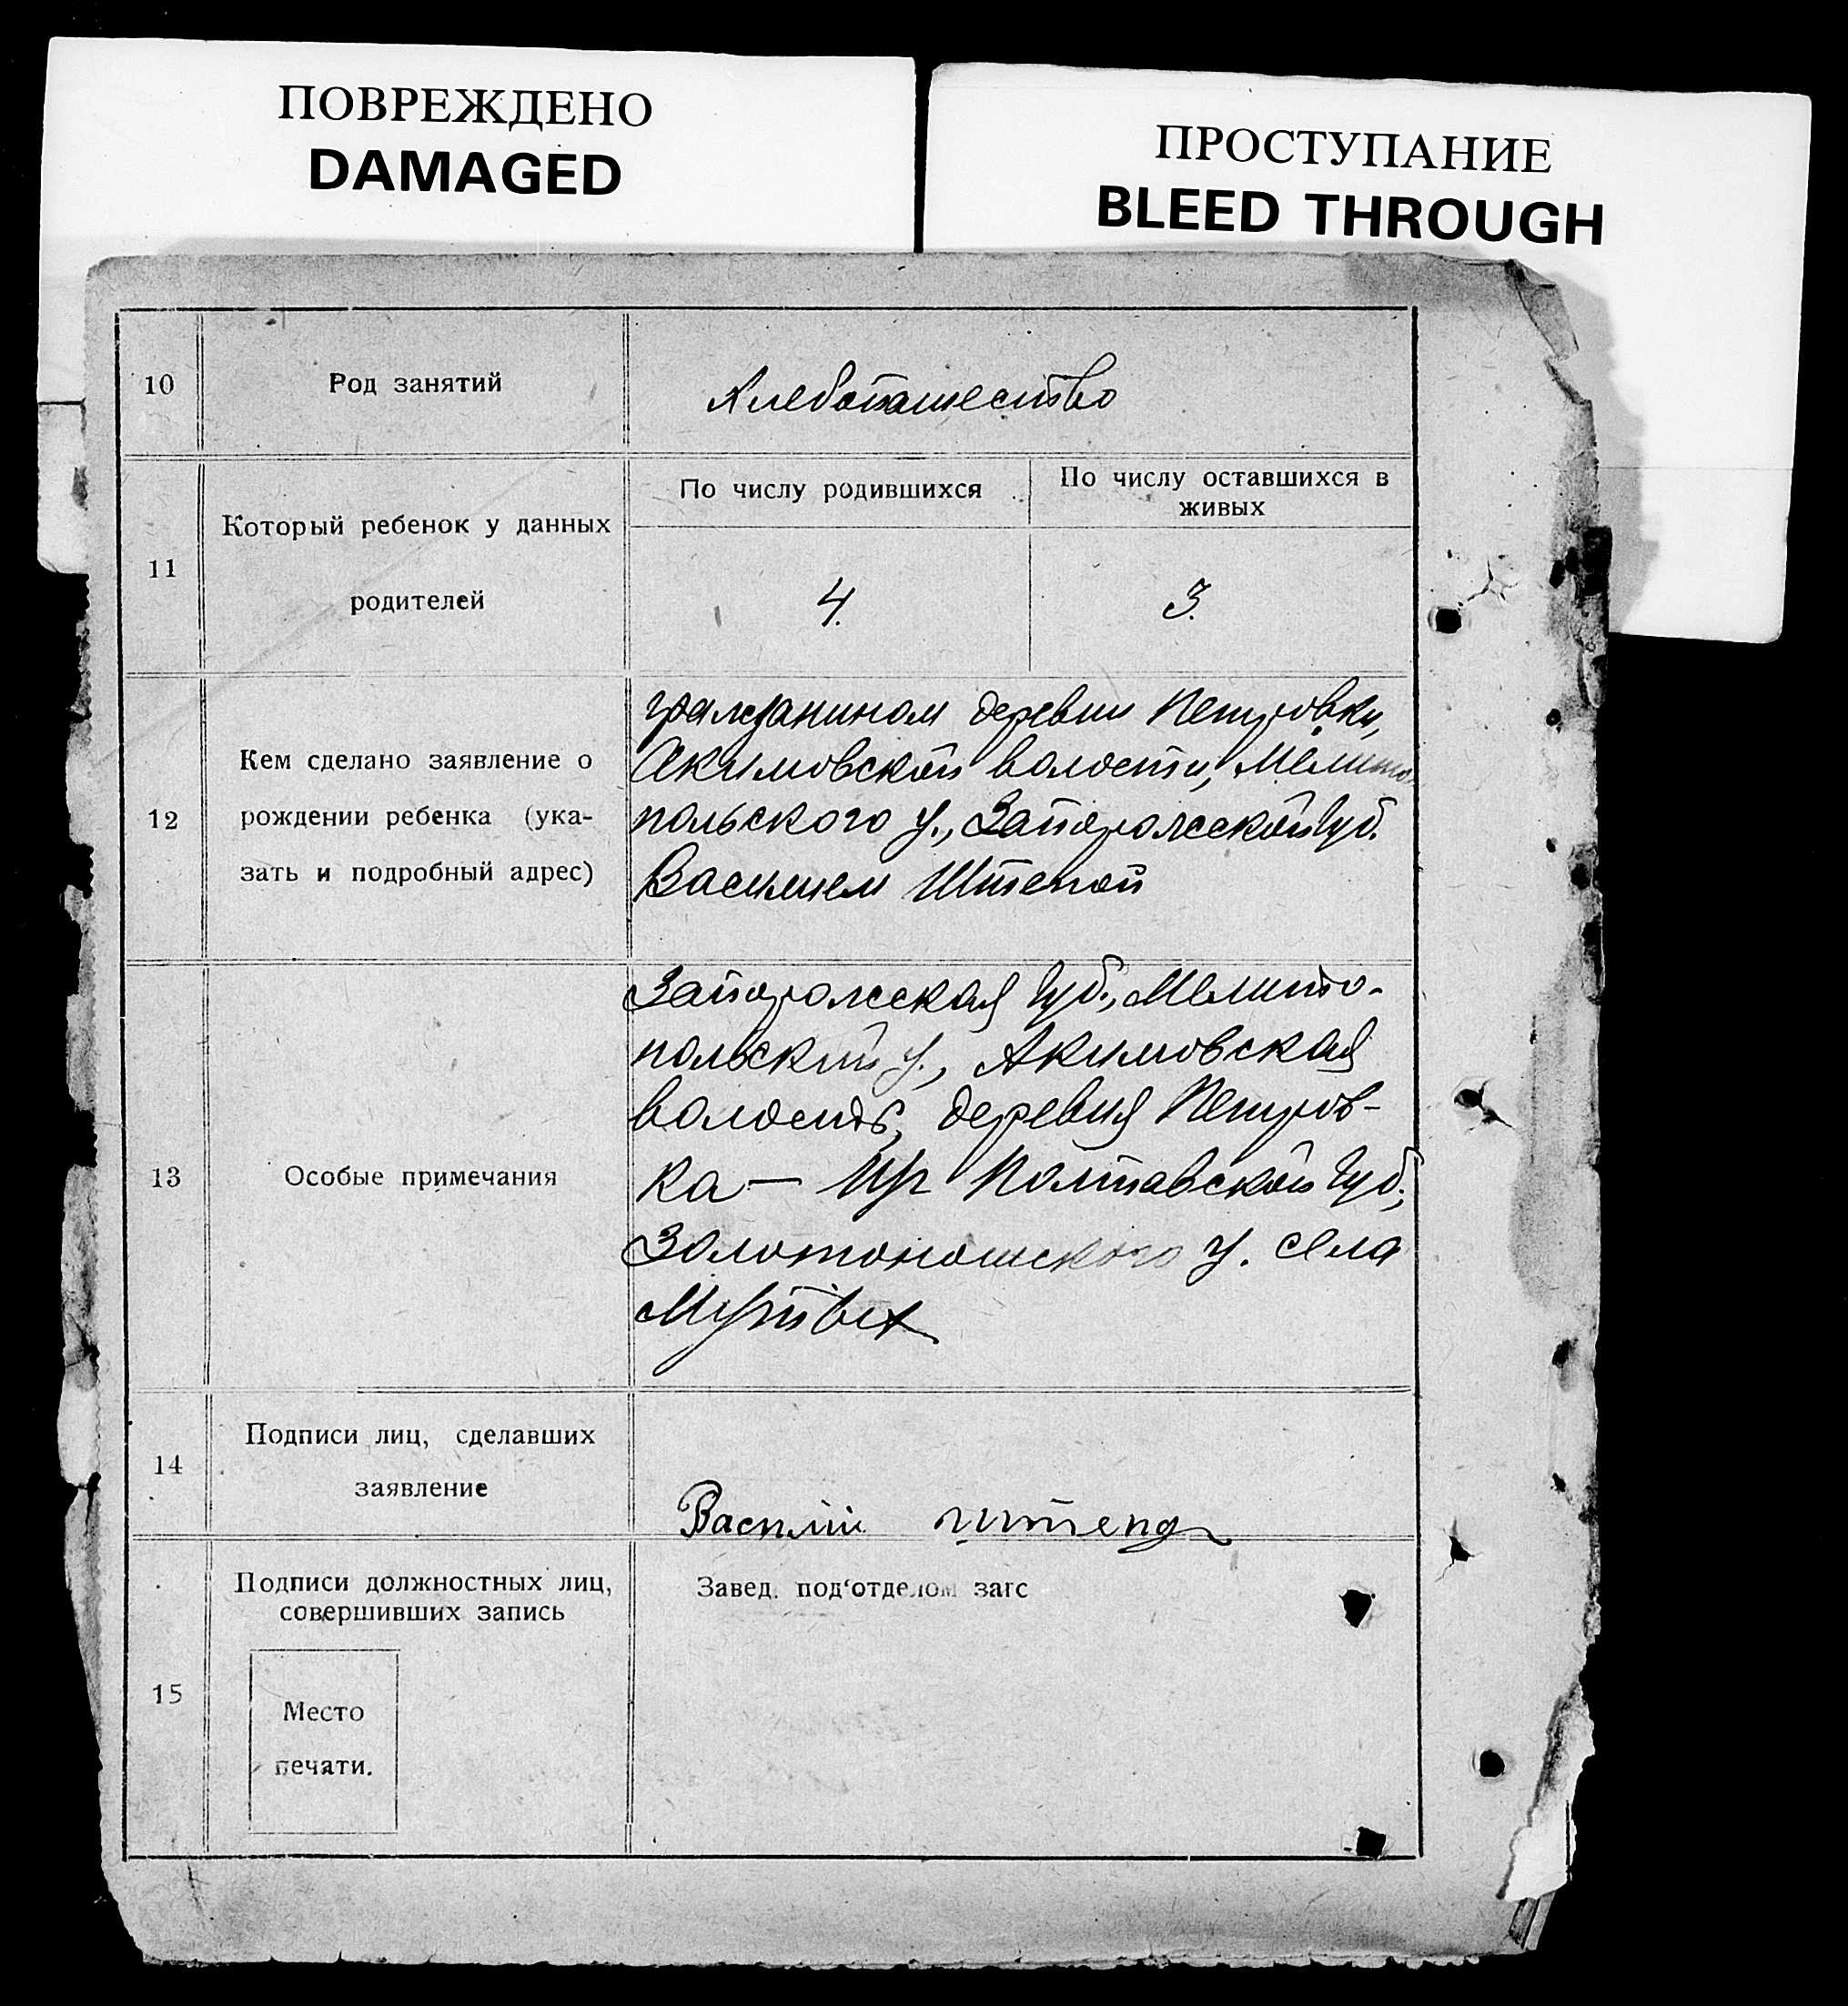 ПОВРЕЖДЕНО
DAMAGED
ПРОСТУПАНИЕ
BLEED THROUGH
10
Род занятий
Хлебопашество
11
Который ребенок у данных
родителей
По числу родившихся
По числу оставшихся в
живых
4.
3.
12
Кем сделано заявление о
рождении ребенка (ука-
зать и подробный адрес)
гражданином деревни Петровки,
Акимовской волости, Мелито-
польского у., Запорожской губ.
Василием Штепой
13
Особые примечания
Запорожская губ., Мелито-
польский у., Акимовская
волость, деревня Петров-
ка — Пр Полтавской губ.,
Золотоношского у. села
14
Подписи лиц, сделавших
заявление
Василий Штепа
15
Подписи должностных лиц,
совершивших запись
Завед. под‘отделом загс
Место
печати.